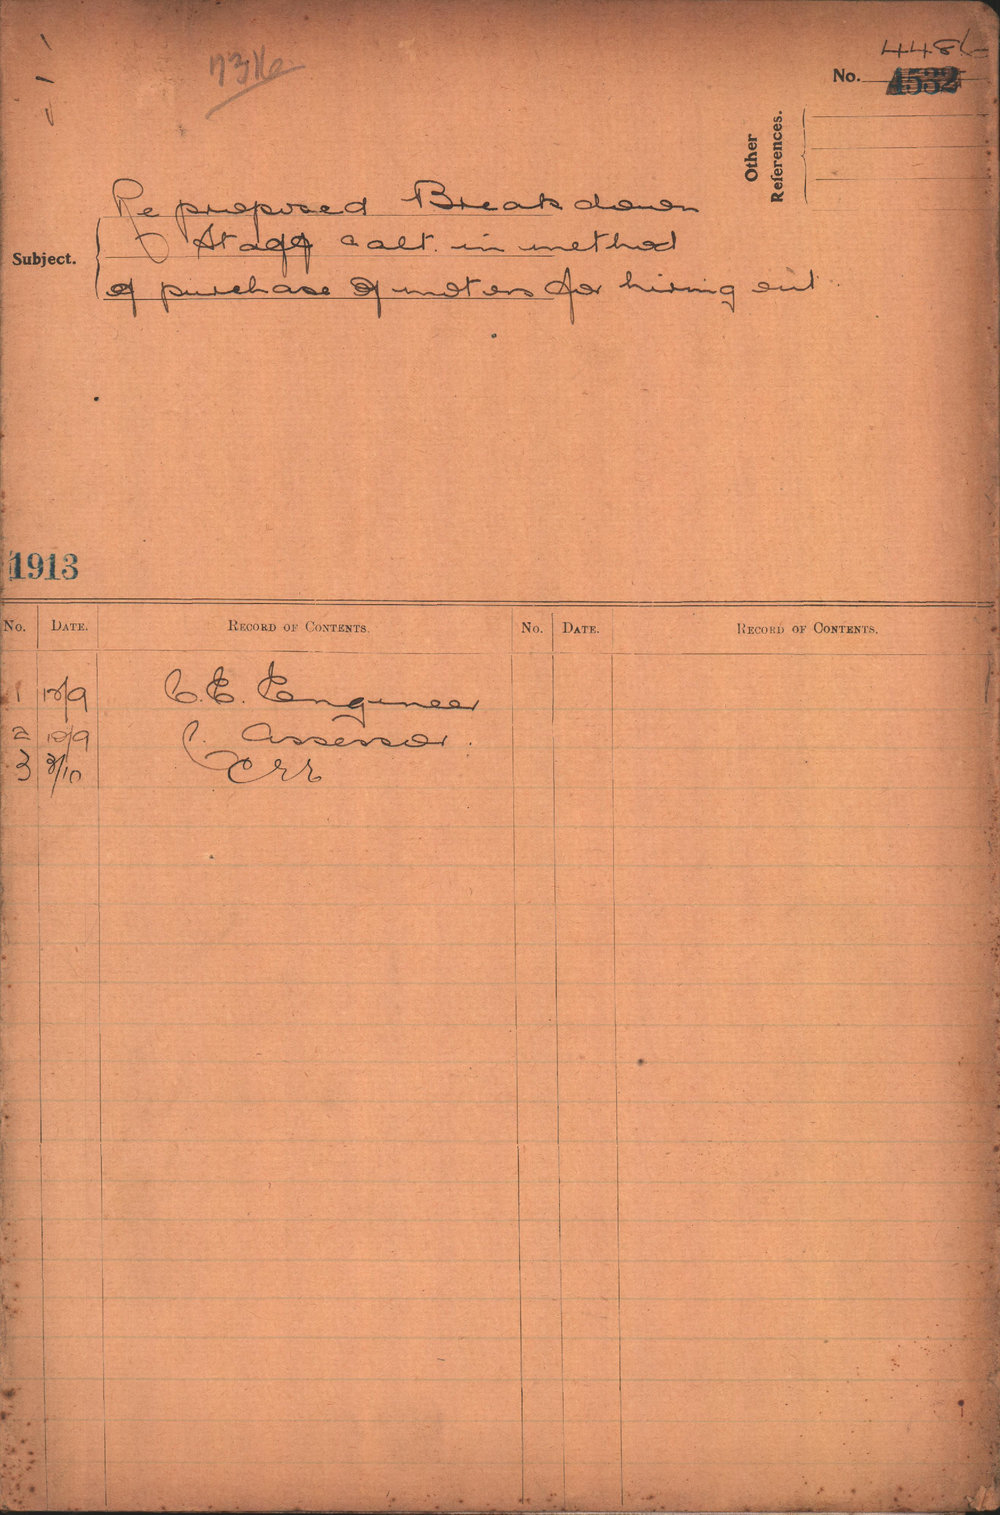 7316
4486
No. 4532
Other References.
Subject.
Re proposed Breakdown
Staff & alt. in method
of purchase of motors for hiring out
1913
No. DATE. RECORD OF CONTENTS. No. DATE. RECORD OF CONTENTS.
1 12/9 C. E. Engineer
2 12/9 C. Assessor.
3 3/10